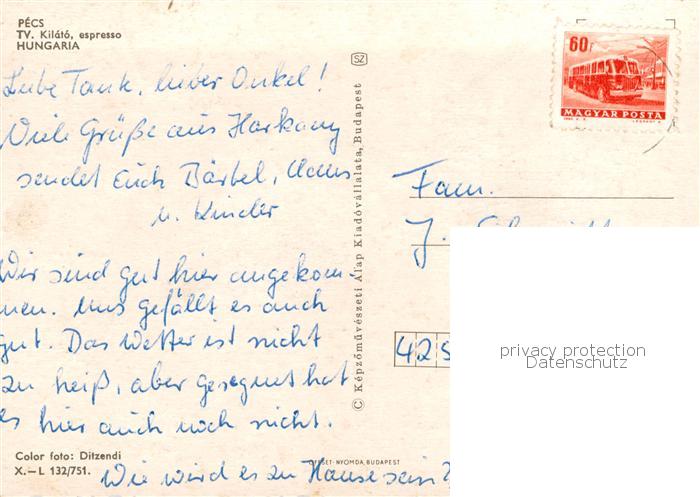 PÉCS
TV. Kilátó, espresso
HUNGARIA
Liebe Tante, lieber Onkel!
Viele Grüße aus Harkany
sendet Euch Bärbel, Claus
u. Kinder
Wir sind gut hier angekom-
men. Uns gefällt es auch
gut. Das Wetter ist nicht
zu heiß, aber geregnet hat
es hier auch noch nicht.
Wie wird es zu Hause sein?
Color foto: Ditzendi
X.—L 132/751.
OFFSET-NYOMDA, BUDAPEST
SZ
© Képzőművészeti Alap Kiadóvállalata, Budapest
60f
MAGYAR POSTA
Fam.
J.
425
privacy protection
Datenschutz